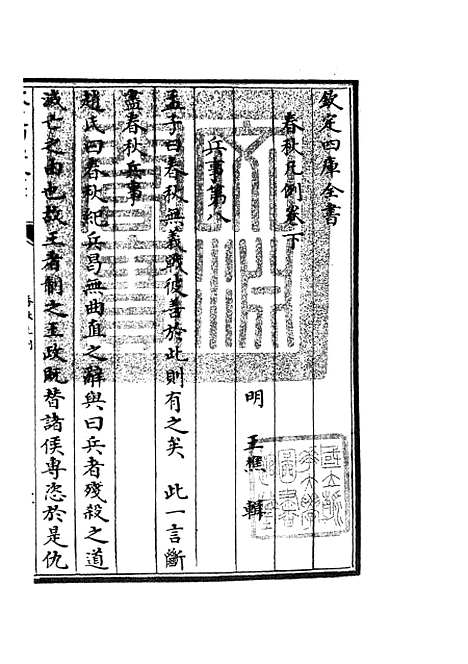 欽定四庫全書
春秋凡例卷下
明 王樵 輯
兵事第八
孟子曰春秋無義戰彼善於此則有之矣 此一言斷
盡春秋兵事
趙氏曰春秋紀兵曷無曲直之辭與曰兵者殘殺之道
滅亡之由也故王者制之王政既替諸侯專恣於是仇